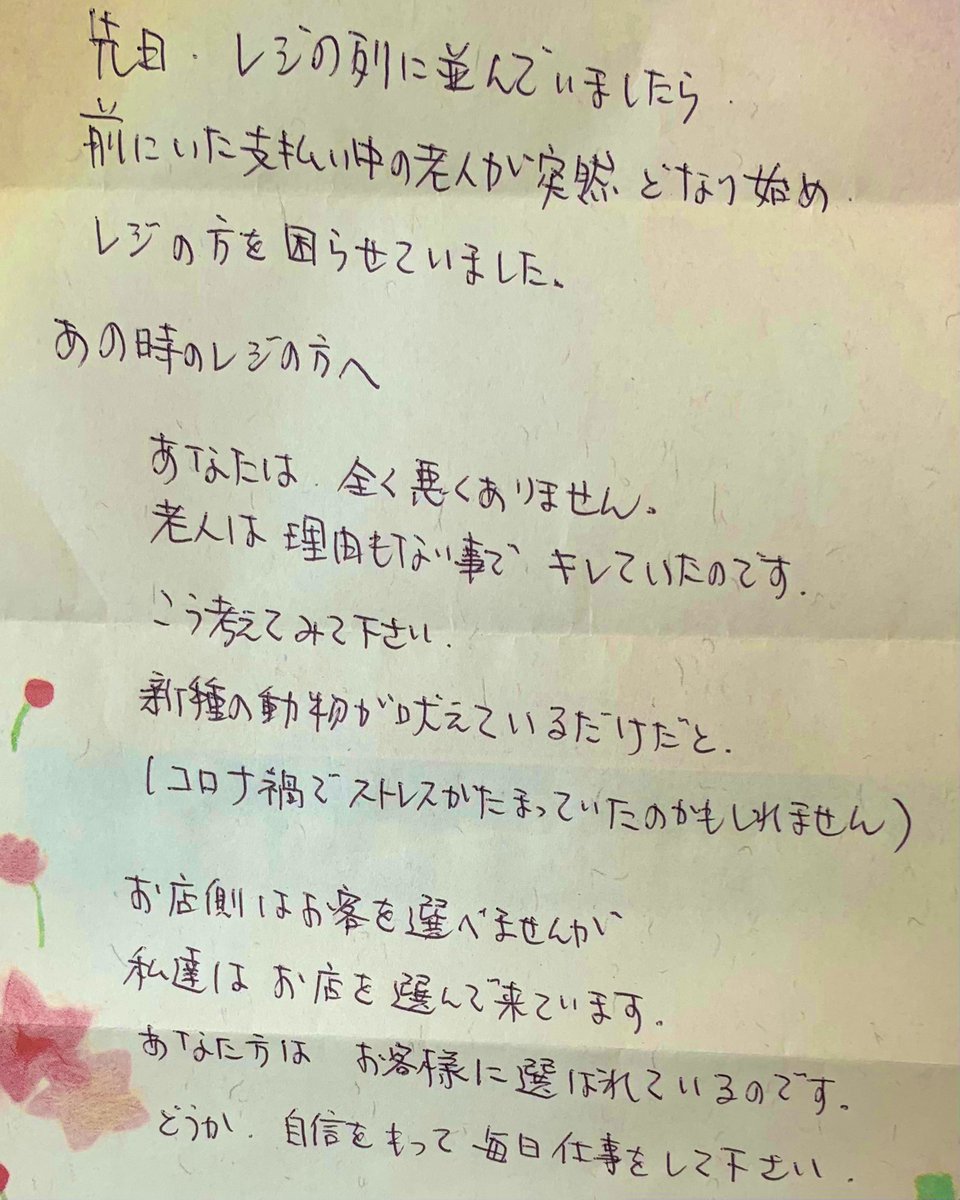 先日、レジの列に並んでいましたら、
前にいた支払い中の老人が突然どなり始め、
レジの方を困らせていました。
あの時のレジの方へ
あなたは、全く悪くありません。
老人は理由もない事でキレていたのです。
こう考えてみて下さい。
新種の動物が吠えているだけだと。
(コロナ禍でストレスがたまっていたのかもしれません)
お店側はお客を選べませんが
私達はお店を選んで来ています。
あなた方はお客様に選ばれているのです。
どうか、自信をもって毎日仕事をして下さい。